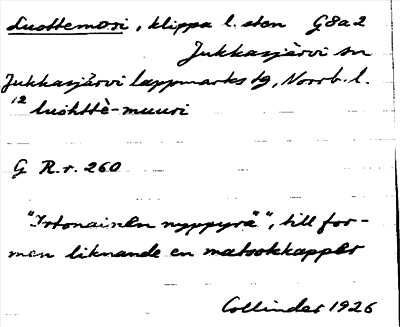 Luottemori, klippa l. sten G8a2
Jukkasjärvi sn
Jukkasjärvi lappmarks tg, Norrb. l.
12 luòhttè-muuri
G R.r. 260
"Irtonainen nyppyrä", till for-
men liknande en
Collinder 1926